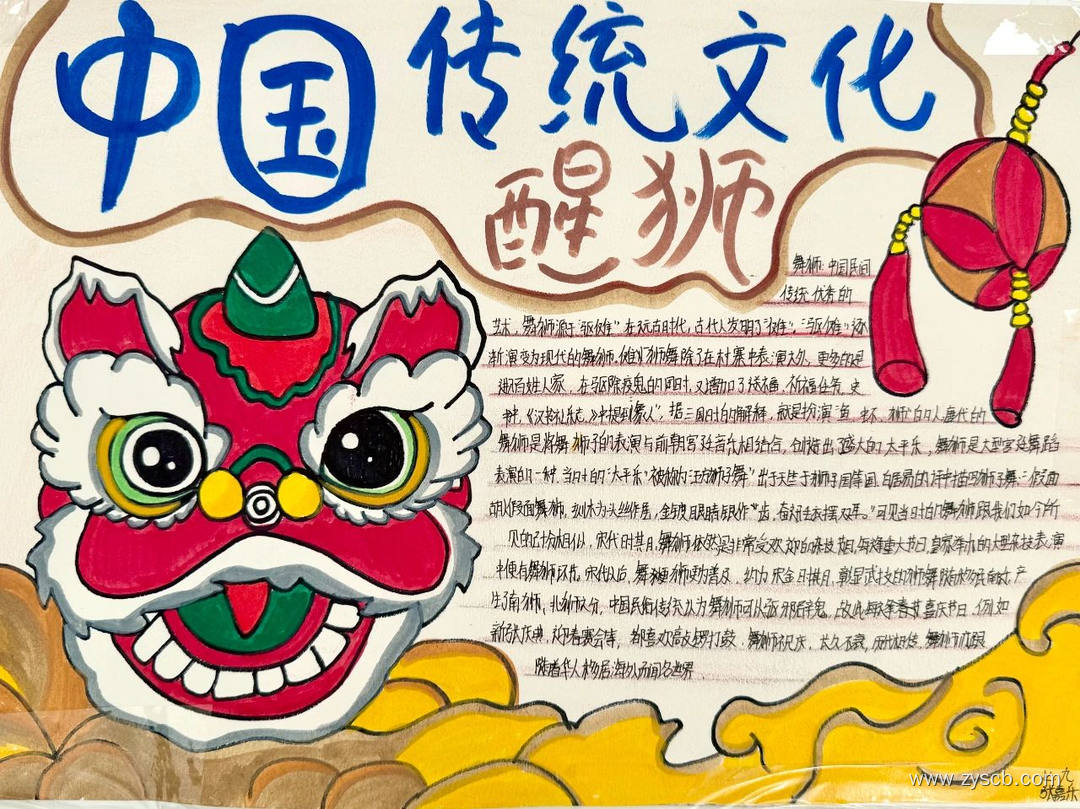 中国传统文化
醒狮
舞狮：中国民间
传统优秀的
艺术，舞狮源于“驱傩”在远古时代，古代人发明了“驱傩”，“驱傩”逐
渐演变为现代的舞狮，傩狮舞除了在村寨中表演大外，更多的是
进百姓人家，在驱除疫鬼的同时，又增加了送福、祈福任务，史
书，《汉书礼乐志》中提到“象人”，据三国时的解释，就是扮演鱼、虾、狮的人唐代的
舞狮是将舞狮子的表演与前朝宫廷音乐相结合，创造出盛大的太平乐，舞狮是大型宫廷舞蹈
表演的一种，当时的“太平乐”被称为“五方狮子舞”出于天竺于狮子国等国，白居易的诗中描写狮子舞：“假面
胡人假面舞狮，刻木为头丝作尾，金镀眼睛银作齿，奋迅毛衣摆双耳。”可见当时的舞狮跟我们如今所
见的十分相似，宋代时期，舞狮依然是非常受欢迎的杂技节目，每逢重大节日，皇家举办的大型杂技表演
中便有舞狮环节，宋代以后，舞狮更为普及，约为宋金时期，彰显武技的狮舞随移民南传产
生了南狮，北狮之分，中国民俗传统认为舞狮可以驱邪辟鬼，故此每逢喜庆节日，例如
新张庆典，迎春赛会等，都喜欢敲锣打鼓，舞狮祝庆，长久不衰，历代相传，舞狮亦跟
随着华人移居海外而闻名世界
九
张嘉乐
www.zyscb.com